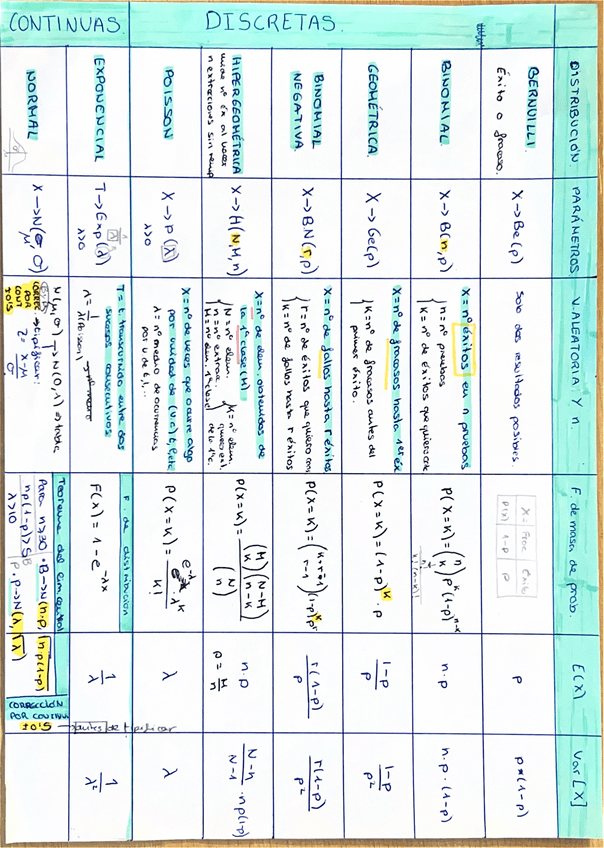 DISCRETAS.
CONTINUAS
DISTRIBUCIÓN.
PARÁMETROS
V. ALEATORIA Y n.
F de masa de prob.
E(X)
Var[X]
BERNUILLI.
Éxito o fracaso.
X→Be(p)
Solo dos resultados posibles
X= Frac éxito
P(X) 1-p p
p
p*(1-p)
BINOMIAL
X→B(n,p)
X = nº éxitos en n pruebas
n = nº pruebas
K = nº de éxitos que quiero
P(X=K) = (n K) p^K (1-p)^n-K
n·p
n·p·(1-p)
GEOMÉTRICA.
X→Ge(p)
X = nº de fracasos hasta 1er éx
K = nº de fracasos antes del
primer éxito.
P(X=K) = (1-p)^K · p
1-p/p
1-p/p²
BINOMIAL
NEGATIVA.
X→B.N(r,p)
X = nº de fallos hasta r éxitos
r = nº de éxitos que quiero con
K = nº de fallos hasta r éxitos
P(X=K) = (K+r-1 r-1) (1-p)^K p^r
r(1-p)/p
r(1-p)/p²
HIPERGEOMÉTRICA
n extracciones sin
X→H(N,M,n)
X = nº de elem. obtenidos de
la 1ª clase (M)
N = nº elem.
n = nº extrac.
M = nº elem. 1ª clase
K = nº elem.
quiero
de la 1ª c.
P(X=K) = (M K)(N-M n-K)/(N n)
n·p
p = M/n
N-n/N-1 · np(1-p)
POISSON
X→P(λ)
λ>0
X = nº de veces que ocurre algo
por unidad de
λ = nº medio de ocurrencias
por u de t,l,..
P(X=K) = e^-λ λ^K/K!
λ
λ
EXPONENCIAL
T→Exp(λ)
λ>0
T = t. transcurrido entre dos
sucesos consecutivos
λ = 1/
F. de distribución
F(X) = 1-e^-λx
1/λ
1/λ²
NORMAL
X→N(σ, σ)
μ
N(μ,σ) → N(0,1)
tipificar:
Z = X-μ/σ
CORREC.
POR
CONT
±0'5
Teorema del Lim central
Para n≥30
np(1-p)>5
λ>10
B→N(n·p, √np(1-p))
P→N(λ, √λ)
CORRECCIÓN
POR CONTINU
±0'5 → antes de tipificar